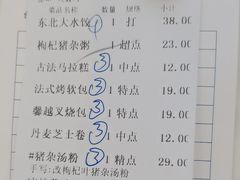 菜品名称 数量 规格 小计
东北大水饺 1 打 38.00
枸杞猪杂粥 1 超点 23.00
古法马拉糕 ③ 1 中点 12.00
法式烤软包 ③ 1 特点 19.00
馨越叉烧包 ③ 1 特点 19.00
丹麦芝士卷 ③ 1 中点 12.00
#猪杂汤粉 ③ 1 精点 29.00
手写:改枸杞叶猪杂汤粉